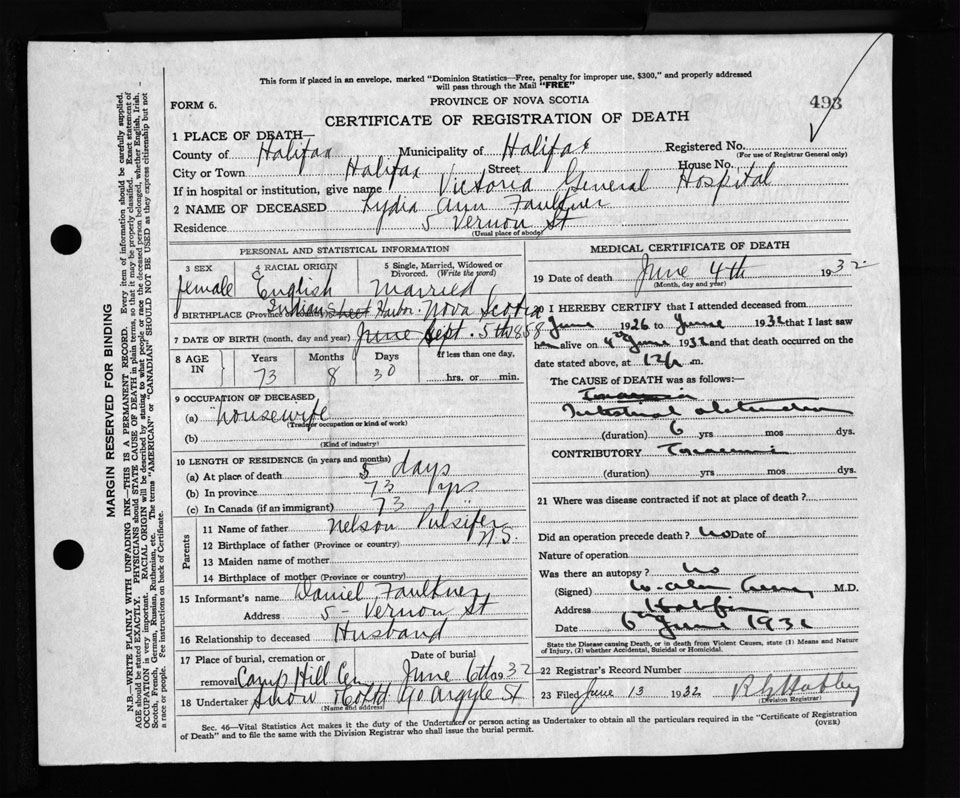 This form if placed in an envelope, marked "Dominion Statistics—Free, penalty for improper use, $300," and properly addressed
will pass through the Mail "FREE"
PROVINCE OF NOVA SCOTIA
493
FORM 6.
CERTIFICATE OF REGISTRATION OF DEATH
1 PLACE OF DEATH—
County of Halifax Municipality of Halifax Registered No.
(For use of Registrar General only)
City or Town Halifax Street House No.
If in hospital or institution, give name Victoria General Hospital
2 NAME OF DECEASED Lydia Ann Faulkner
Residence 5 Vernon St
(Usual place of abode)
PERSONAL AND STATISTICAL INFORMATION
3 SEX 4 RACIAL ORIGIN 5 Single, Married, Widowed or Divorced. (Write the word)
female English Married
6 BIRTHPLACE (Province or country) Indian Harbor Nova Scotia
7 DATE OF BIRTH (month, day and year) Sept. 5th 1858
8 AGE IN Years Months Days If less than one day,
73 8 30 hrs. or min.
9 OCCUPATION OF DECEASED
(a) housewife
(Trade or occupation or kind of work)
(b)
(Kind of industry)
10 LENGTH OF RESIDENCE (in years and months)
(a) At place of death 5 days
(b) In province 73 yrs
(c) In Canada (if an immigrant) 73 "
Parents
11 Name of father Nelson Pulsifer
12 Birthplace of father (Province or country) N.S.
13 Maiden name of mother
14 Birthplace of mother (Province or country)
15 Informant's name Daniel Faulkner
Address 5 - Vernon St
16 Relationship to deceased Husband
17 Place of burial, cremation or Date of burial
removal Camp Hill Cem June 6th 1932
18 Undertaker Snow & Co Ltd 90 Argyle St
(Name and address)
MEDICAL CERTIFICATE OF DEATH
19 Date of death June 4th 1932
(Month, day and year)
20 I HEREBY CERTIFY that I attended deceased from
June 1926 to June 1932 that I last saw
h alive on 4th June 1932 and that death occurred on the
date stated above, at 12 p.m.
The CAUSE OF DEATH was as follows:—
Intestinal obstruction
(duration) 6 yrs mos dys.
CONTRIBUTORY
(duration) yrs mos dys.
21 Where was disease contracted if not at place of death?
Did an operation precede death? no Date of
Nature of operation
Was there an autopsy? no
(Signed) M.D.
Address Halifax
Date 6th June 1932
State the Disease causing Death, or in death from Violent Causes, state (1) Means and Nature
of Injury, (2) whether Accidental, Suicidal or Homicidal.
22 Registrar's Record Number
23 Filed June 13 1932
(Division Registrar)
Sec. 46—Vital Statistics Act makes it the duty of the Undertaker or person acting as Undertaker to obtain all the particulars required in the "Certificate of Registration
of Death" and to file the same with the Division Registrar who shall issue the burial permit.
(OVER)
MARGIN RESERVED FOR BINDING
N.B.—WRITE PLAINLY WITH UNFADING INK—THIS IS A PERMANENT RECORD. Every item of information should be carefully supplied.
AGE should be stated EXACTLY. PHYSICIANS should STATE CAUSE OF DEATH in plain terms, so that it may be properly classified. Exact statement of
OCCUPATION is very important. RACIAL ORIGIN will be described by stating to what people or race the deceased person belonged, whether English, Irish,
Scotch, French, German, Russian, Ruthenian, etc. The terms "AMERICAN" or "CANADIAN" SHOULD NOT BE USED as they express citizenship but not
a race or people. Fee instructions on back of Certificate.